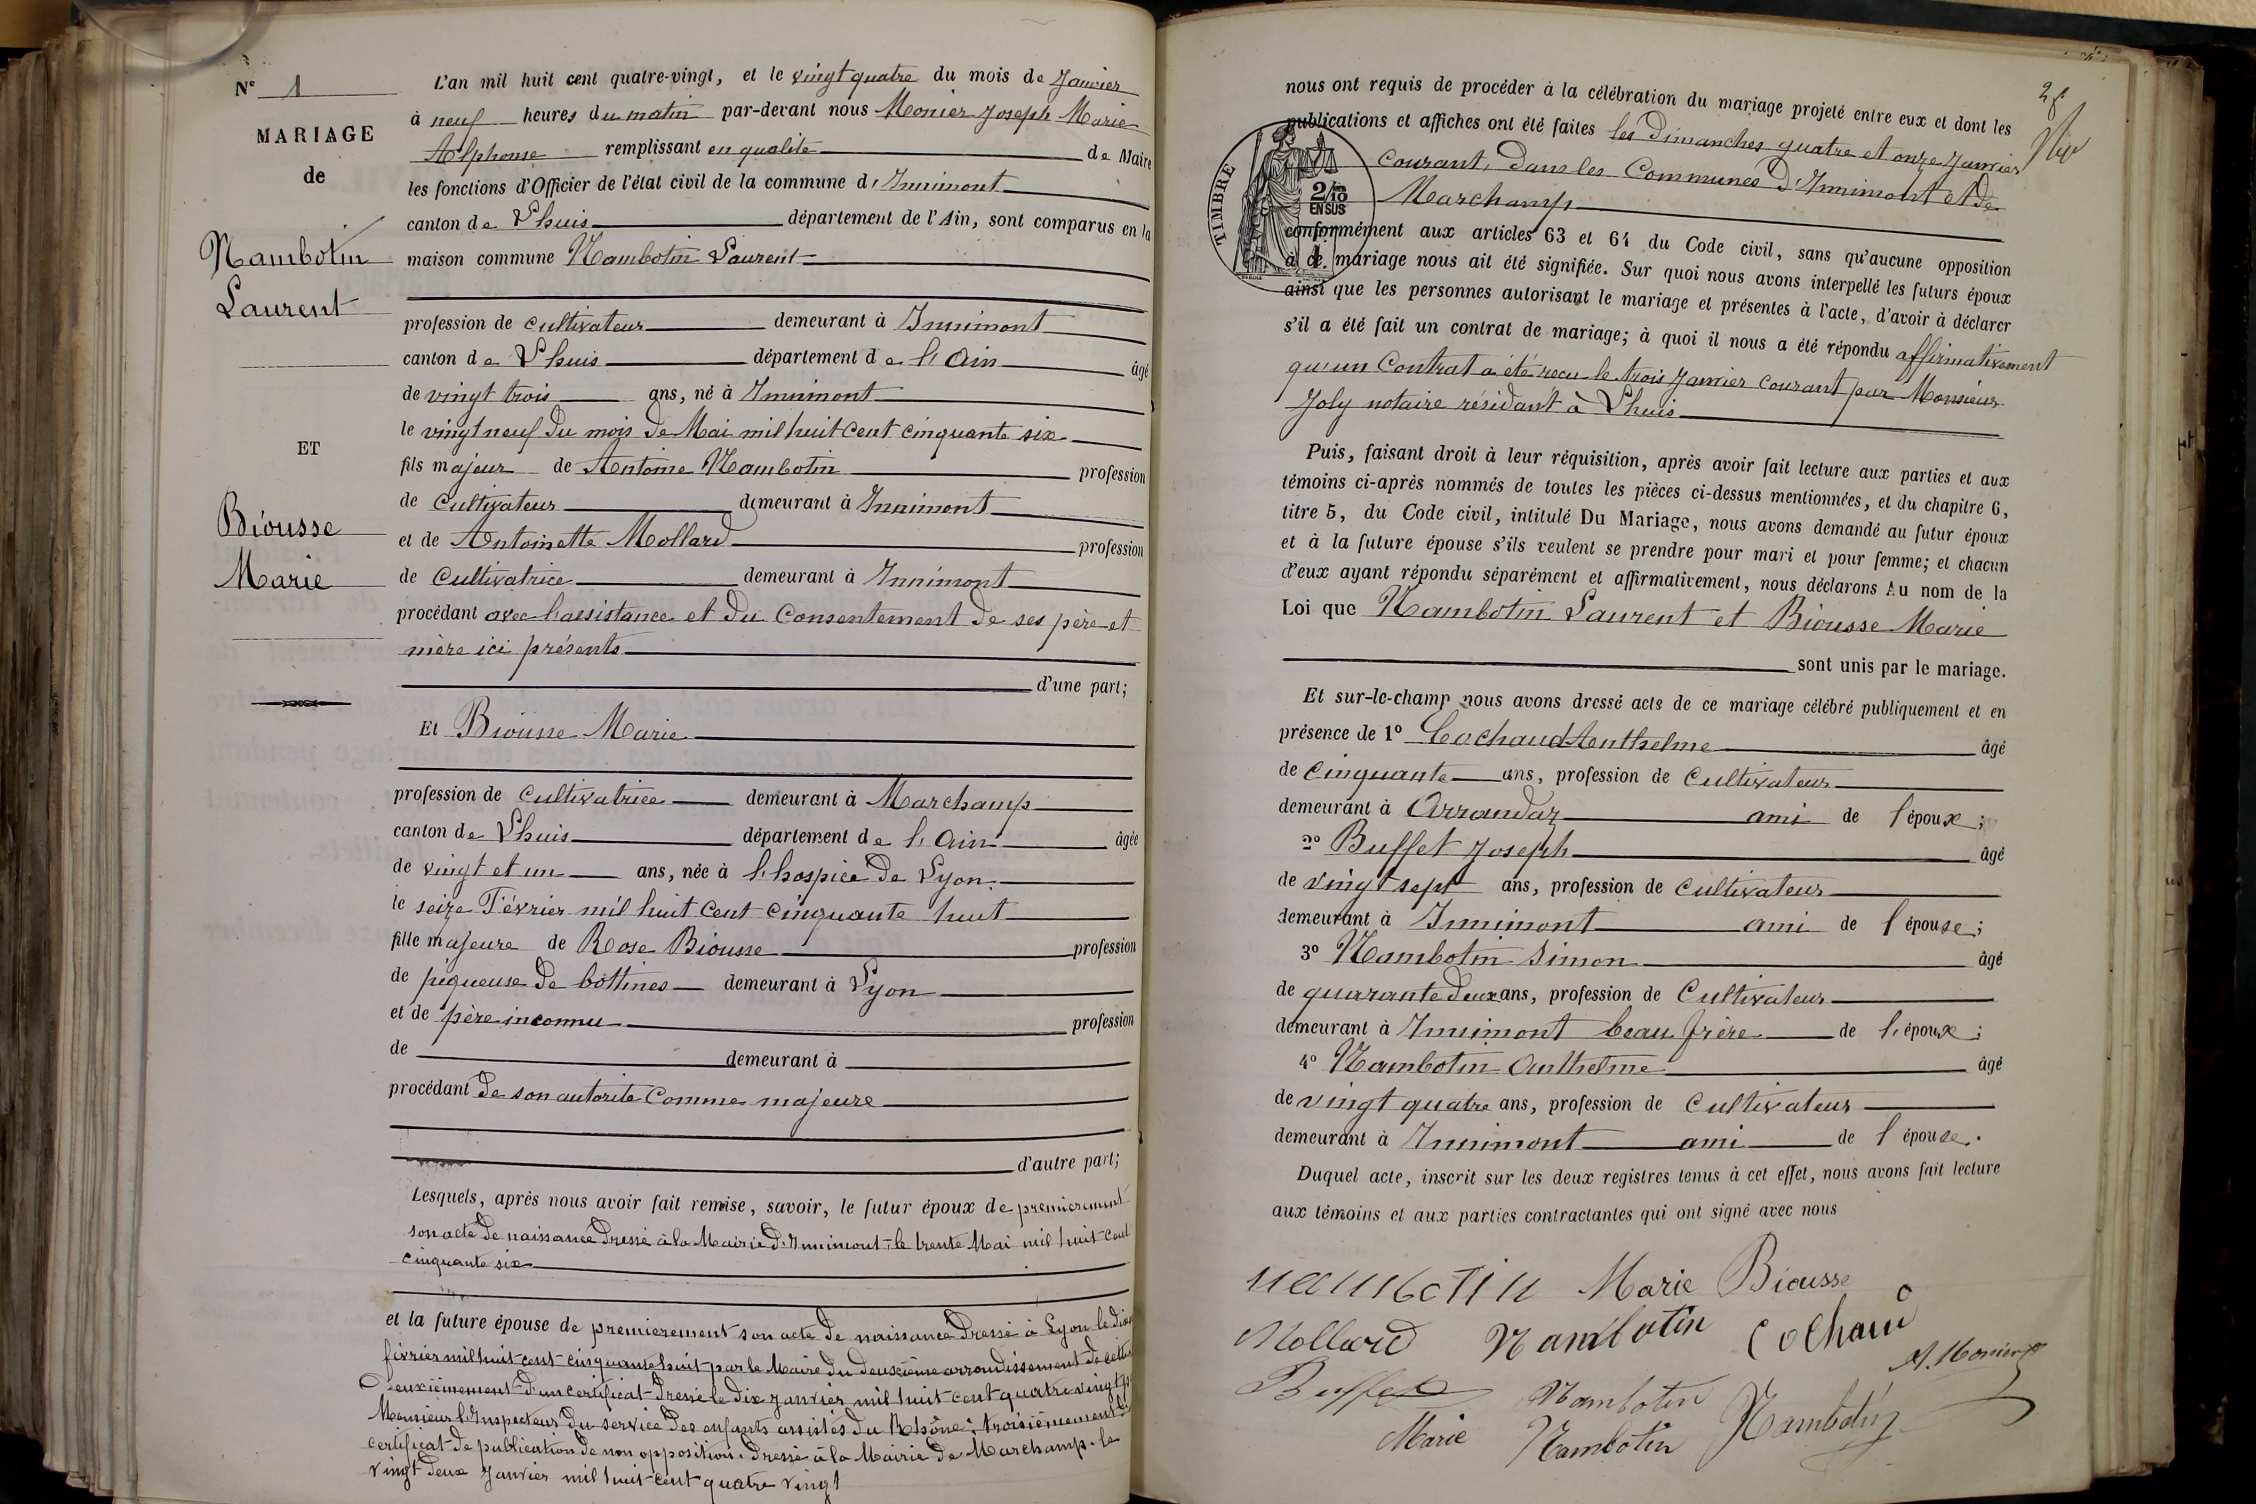 N° 1
MARIAGE
de
Nambotin
Laurent
ET
Biousse
Marie
L'an mil huit cent quatre-vingt, et le vingt quatre du mois de Janvier
à neuf heures du matin par-devant nous Monier Joseph Marie
Alphonse remplissant en qualité de Maire
les fonctions d'Officier de l'état civil de la commune d'Innimont
canton de Lhuis département de l'Ain, sont comparus en la
maison commune Nambotin Laurent
profession de cultivateur demeurant à Innimont
canton de Lhuis département de l'Ain âgé
de vingt trois ans, né à Innimont
le vingt neuf du mois de Mai mil huit cent cinquante six
fils majeur de Antoine Nambotin profession
de cultivateur demeurant à Innimont
et de Antoinette Mollard profession
de cultivatrice demeurant à Innimont
procédant avec l'assistance et du consentement de ses père et
mère ici présents
d'une part;
Et Biousse Marie
profession de cultivatrice demeurant à Marchamp
canton de Lhuis département de l'Ain âgée
de vingt et un ans, née à l'hospice de Lyon
le seize Février mil huit cent cinquante huit
fille majeure de Rose Biousse profession
de piqueuse de bottines demeurant à Lyon
et de père inconnu profession
de demeurant à
procédant de son autorité comme majeure
d'autre part;
Lesquels, après nous avoir fait remise, savoir, le futur époux de premièrement
son acte de naissance dressé à la Mairie d'Innimont, le trente Mai mil huit cent
cinquante six
et la future épouse de premièrement son acte de naissance dressé à Lyon le
février mil huit cent cinquante huit par le Maire du deuxième arrondissement de cette
deuxièmement d'un certificat dressé le dix Janvier mil huit cent quatre vingt
Monsieur l'Inspecteur du service des enfants assistés du Rhône; troisièmement
certificat de publication de non opposition dressé à la Mairie de Marchamp le
vingt deux Janvier mil huit cent quatre vingt
nous ont requis de procéder à la célébration du mariage projeté entre eux et dont les
publications et affiches ont été faites les Dimanches quatre et onze Janvier
courant, dans les Communes d'Innimont et de
Marchamp
TIMBRE
2/10
EN SUS
conformément aux articles 63 et 64 du Code civil, sans qu'aucune opposition
à ce mariage nous ait été signifiée. Sur quoi nous avons interpellé les futurs époux
ainsi que les personnes autorisant le mariage et présentes à l'acte, d'avoir à déclarer
s'il a été fait un contrat de mariage; à quoi il nous a été répondu affirmativement
qu'un Contrat a été reçu le trois Janvier courant par Monsieur
Joly notaire résidant à Lhuis
Puis, faisant droit à leur réquisition, après avoir fait lecture aux parties et aux
témoins ci-après nommés de toutes les pièces ci-dessus mentionnées, et du chapitre 6,
titre 5, du Code civil, intitulé Du Mariage, nous avons demandé au futur époux
et à la future épouse s'ils veulent se prendre pour mari et pour femme; et chacun
d'eux ayant répondu séparément et affirmativement, nous déclarons Au nom de la
Loi que Nambotin Laurent et Biousse Marie
sont unis par le mariage.
Et sur-le-champ nous avons dressé acte de ce mariage célébré publiquement et en
présence de 1° Cochaud Anthelme âgé
de cinquante ans, profession de cultivateur
demeurant à Arrandaz ami de l'époux;
2° Buffet Joseph âgé
de vingt sept ans, profession de cultivateur
demeurant à Innimont ami de l'épouse;
3° Nambotin Simon âgé
de quarante deux ans, profession de Cultivateur
demeurant à Innimont beau frère de l'époux;
4° Nambotin Anthelme âgé
de vingt quatre ans, profession de Cultivateur
demeurant à Innimont ami de l'épouse.
Duquel acte, inscrit sur les deux registres tenus à cet effet, nous avons fait lecture
aux témoins et aux parties contractantes qui ont signé avec nous
nambotin Marie Biousse
Mollard Nambotin Cochaud
A. Monier
Buffet Nambotin
Marie Nambotin Nambotin